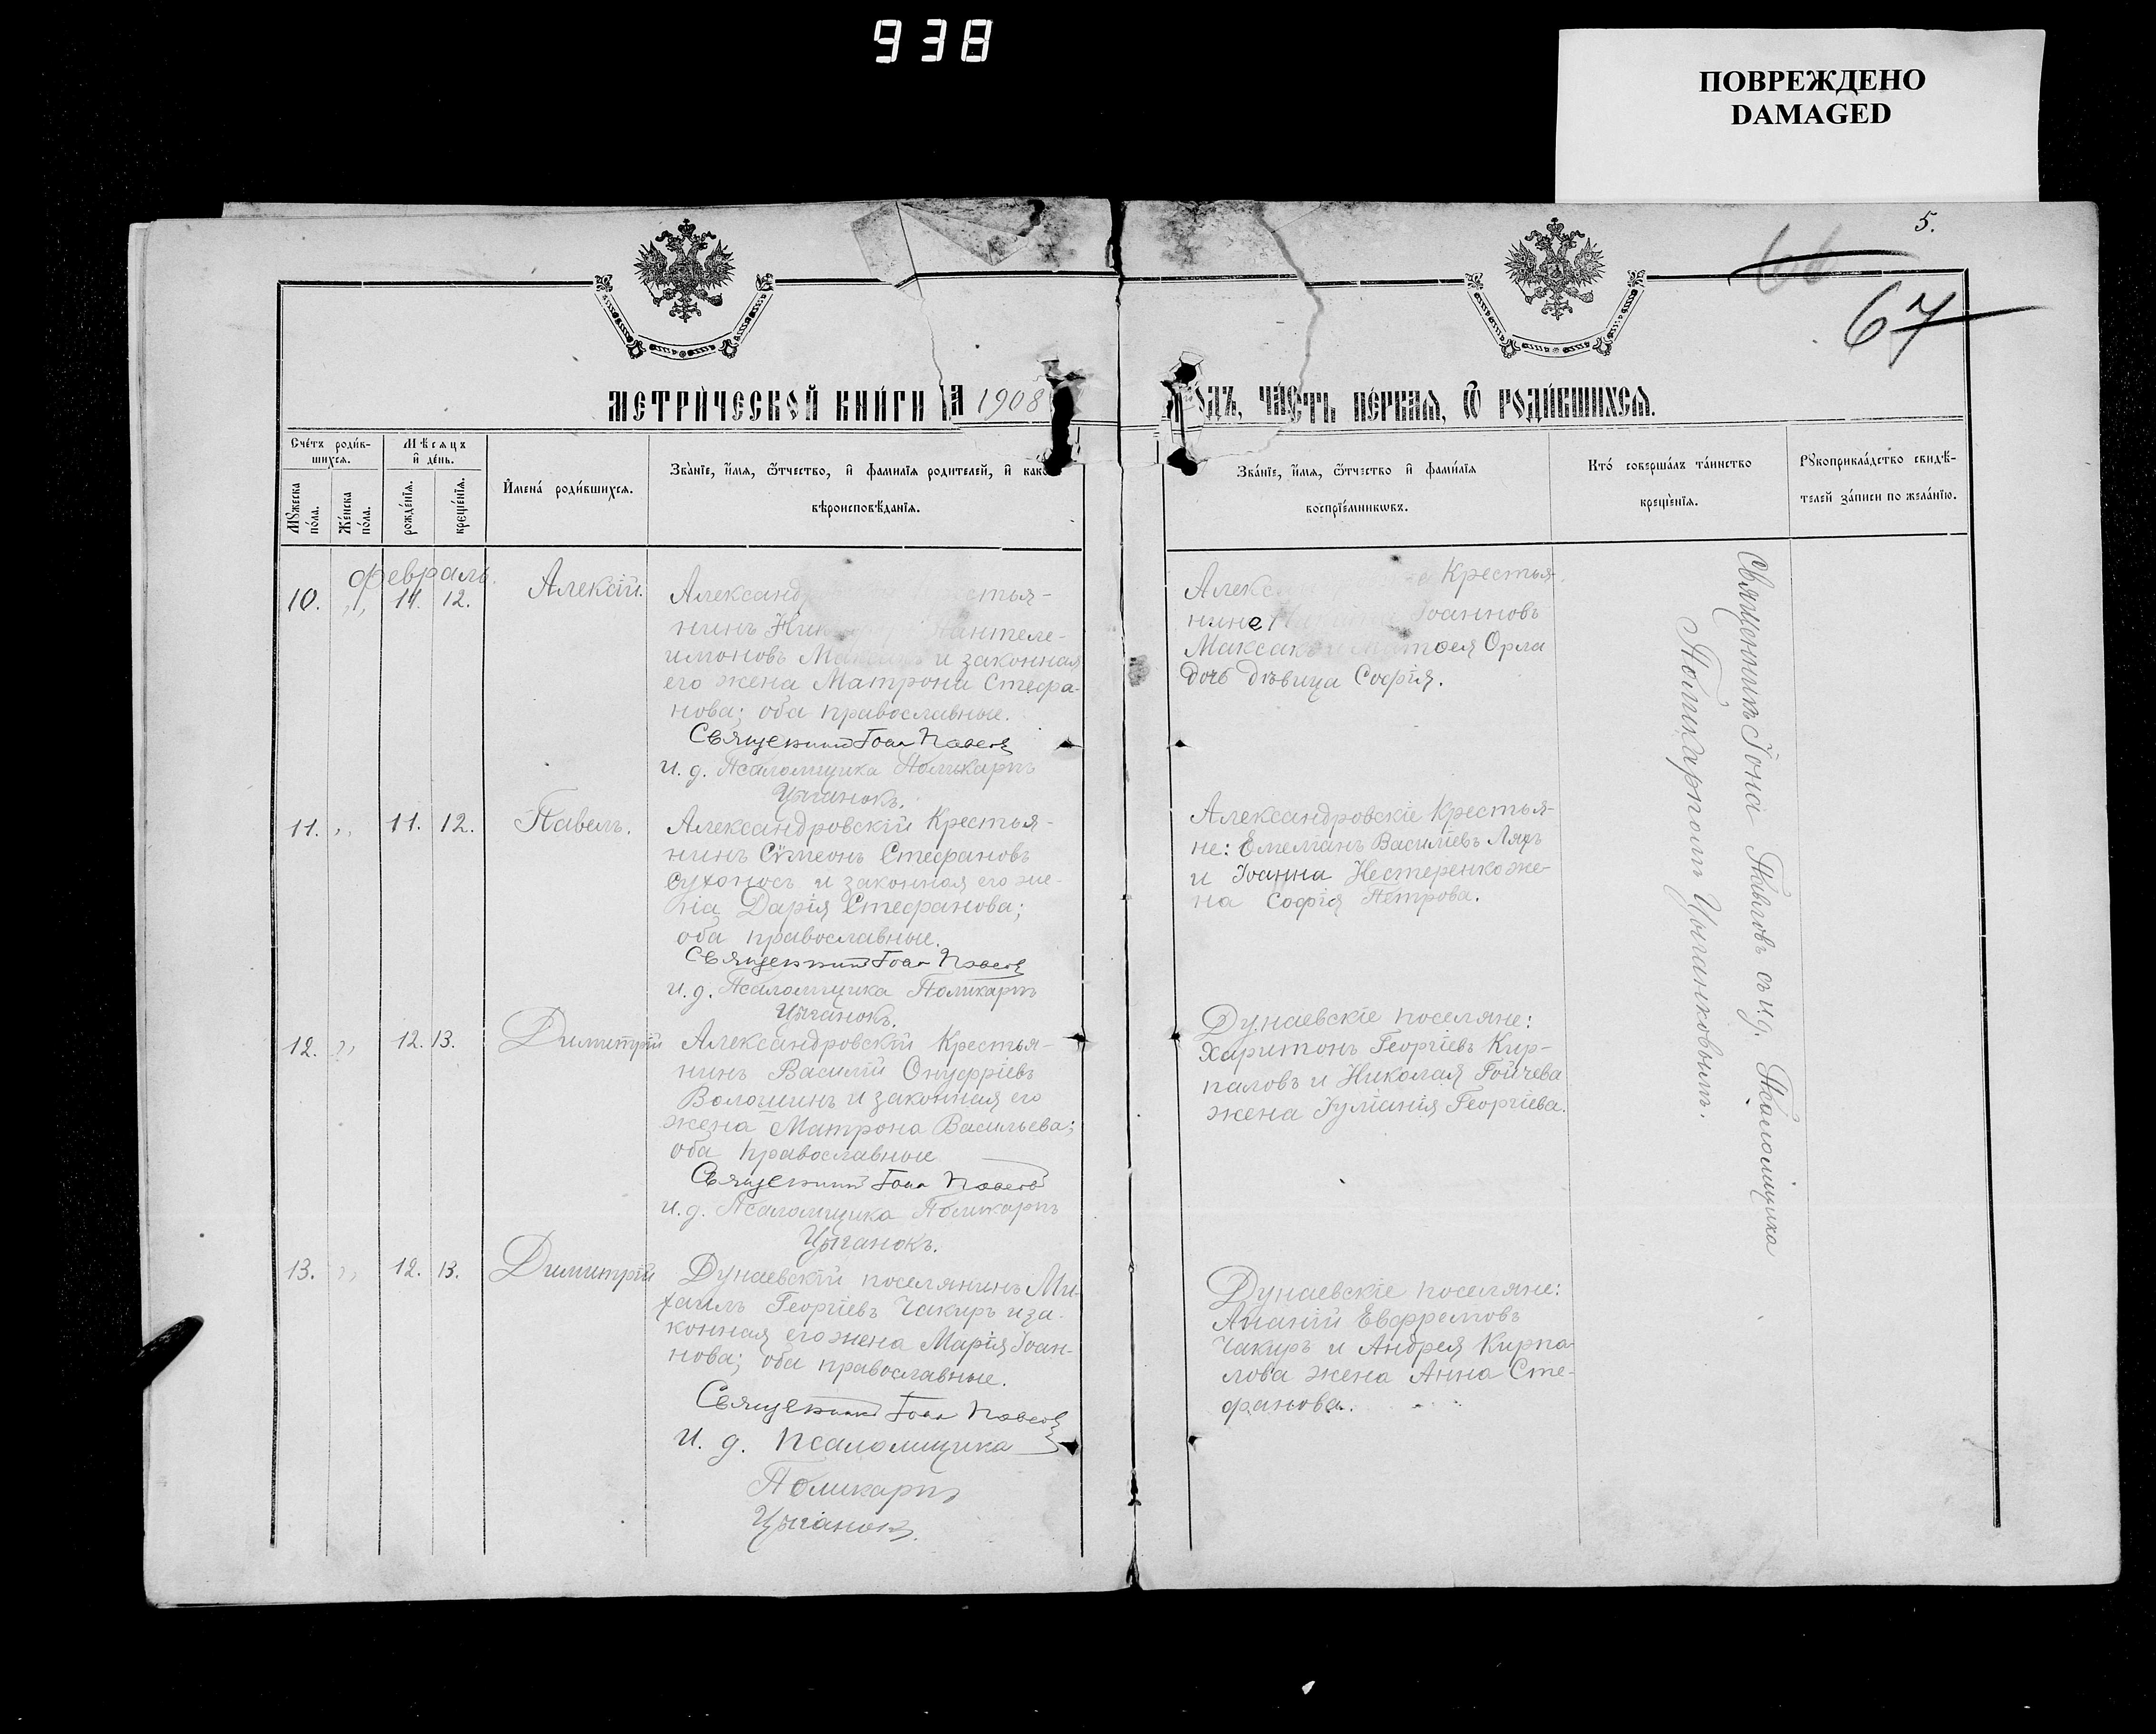 938
ПОВРЕЖДЕНО
DAMAGED
5.
67
МЕТРИ́ЧЕСКОЙ КНИ́ГИ НА 1908
ГОДЪ, ЧА́СТЬ ПЕ́РВАѦ, Ѿ РОДИ́ВШИХСѦ.
Сче́тъ роди́в-
шихсѧ.
Мѣсѧцъ
и҆ де́нь.
Мꙋ́жеска
по́ла.
Же́нска
по́ла.
рожде́нїѧ.
креще́нїѧ.
И҆мена̀ роди́вшихсѧ.
Зва́нїе, и҆́мѧ, ѻ҆́тчество, и҆ фами́лїѧ роди́телей, и҆ како
вѣроисповѣ́данїѧ.
Зва́нїе, и҆́мѧ, ѻ҆́тчество и҆ фами́лїѧ
воспрїе́мникѡвъ.
Кто̀ соверша́лъ та́инство
креще́нїѧ.
Рꙋкоприкла́дство свидѣ́-
телей за́писи по жела́нїю.
Февраль.
10. „ 11. 12. Алексій.
Александ стья-
нинъ Пантеле-
имоновъ и законная
его жена Матрона Стефа-
нова; оба православные.
Священникъ Іоан Павлов
И. д. Псаломщика Поликарпъ
Цыганокъ.
Крестья-
Іоанновъ
Максак Орла
дочь дѣвица Софія.
11. „ 11. 12. Павелъ.
Александровскій Крестья-
нинъ Сѵмеонъ Стефановъ
Сухоносъ и законная его же-
на Дарія Стефанова;
оба православные.
Священникъ Іоан Павлов
И. д. Псаломщика Поликарпъ
Цыганокъ.
Александровскіе Крестья-
не: Емеліанъ Василіевъ Ляхъ
и Іоанна Нестеренко же-
на Софія Петрова.
12. „ 12. 13. Димитрій
Александровскій Крестья-
нинъ Василій Онуфріевъ
Волошинъ и законная его
жена Матрона Васильева;
оба православные
Священникъ Іоан Павлов
И. д. Псаломщика Поликарпъ
Цыганокъ.
Дунаевскіе поселяне:
Харитонъ Георгіевъ Кир-
паловъ и Николая Гойчева
жена Іуліанія Георгіева.
13. „ 12. 13. Димитрій
Дунаевскій поселянинъ Ми-
хаилъ Георгіевъ Чакиръ и за-
конная его жена Марія Іоан-
нова; оба православные.
Священникъ Іоан Павлов
И. д. Псаломщика
Поликарпъ
Цыганокъ.
Дунаевскіе поселяне:
Ананій Евфремовъ
Чакиръ и Андрея Кирпа-
лова жена Анна Сте-
фанова.
Священникъ Іона Павловъ съ и. д. Псаломщика
Поликарпомъ Цыганковымъ.